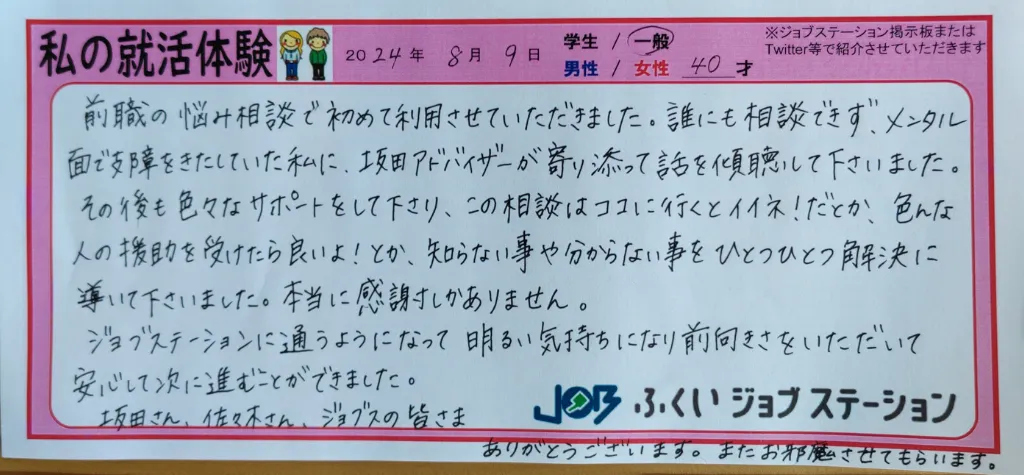 私の就活体験
2024年 8月 9日
学生 / 一般
男性 / 女性 40 才
※ジョブステーション掲示板または
Twitter等で紹介させていただきます
前職の悩み相談で初めて利用させていただきました。誰にも相談できず、メンタル
面で支障をきたしていた私に、坂田アドバイザーが寄り添って話を傾聴して下さいました。
その後も色々なサポートをして下さり、この相談はココに行くとイイネ!だとか、色んな
人の援助を受けたら良いよ!とか、知らない事や分からない事をひとつひとつ解決に
導いて下さいました。本当に感謝しかありません。
ジョブステーションに通うようになって 明るい気持ちになり前向きさをいただいて
安心して次に進むことができました。
坂田さん、佐々木さん、ジョブスの皆さま
JOB ふくい ジョブ ステーション
ありがとうございます。またお邪魔させてもらいます。